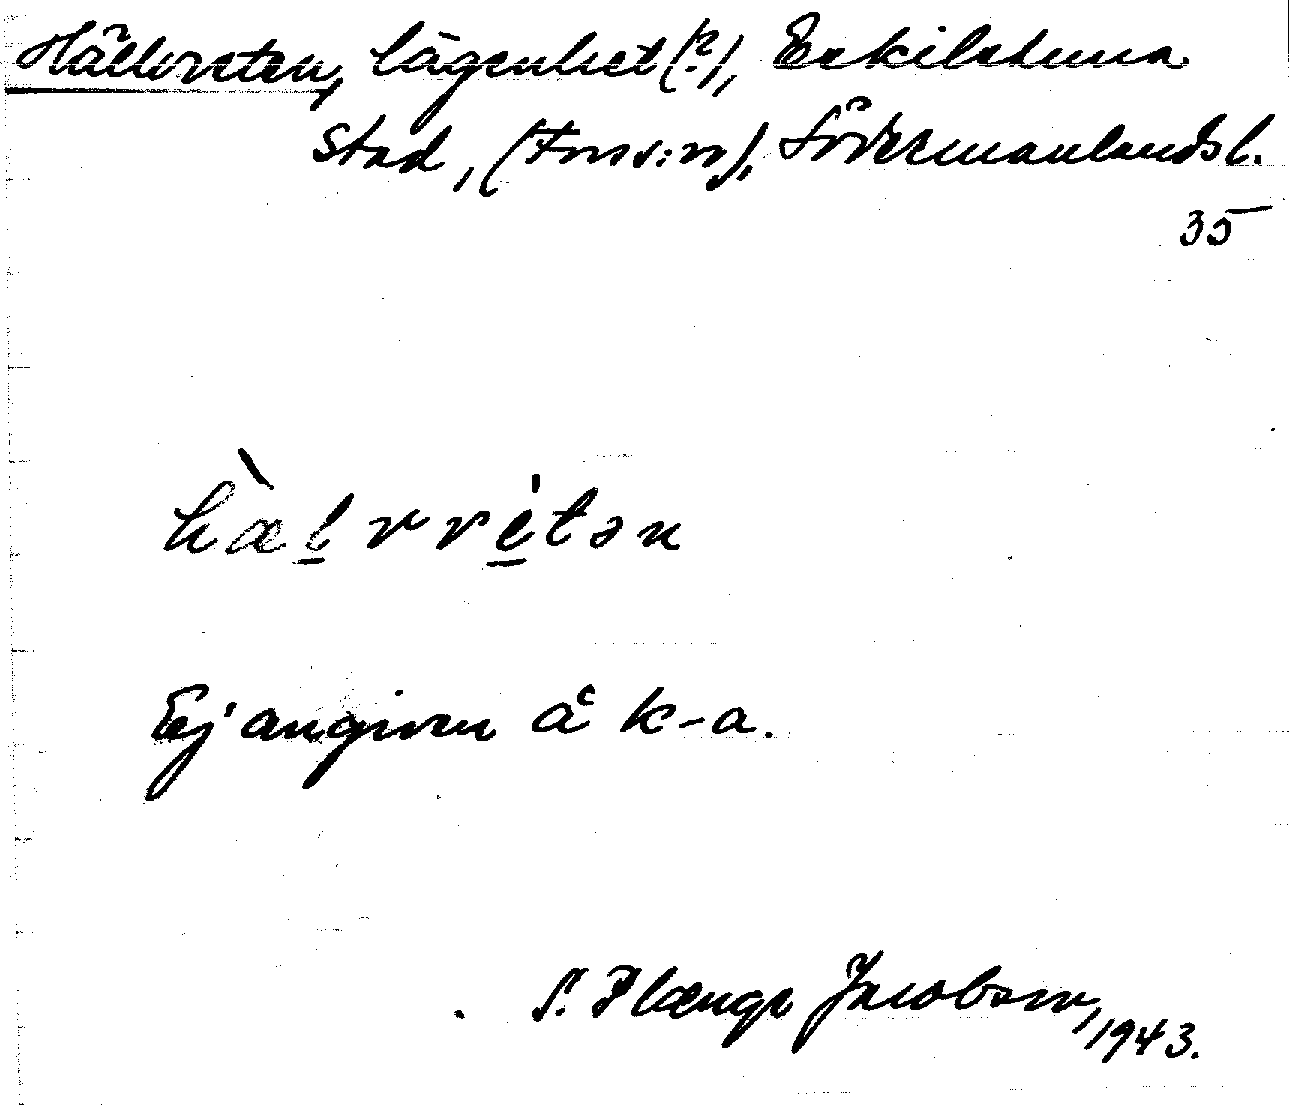 Hällvreten, lägenhet (?), Eskilstuna
stad, (Fors s:n), Södermanlands l.
35
hæl vrétən
Ej angiven å k-a.
S. Hænge Jacobson, 1943.